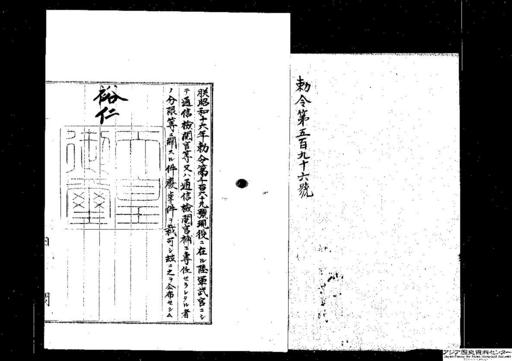 勅令第五百九十六號
朕昭和十六年勅令第千百六十九號現役ニ在ル陸軍武官ニシ
テ通信檢閲官等又ハ通信檢閲官補ニ專任セラレタル者
ノ分限等ニ關スル件廢止ノ件ヲ裁可シ茲ニ之ヲ公布セシム
裕仁
アジア歴史資料センター